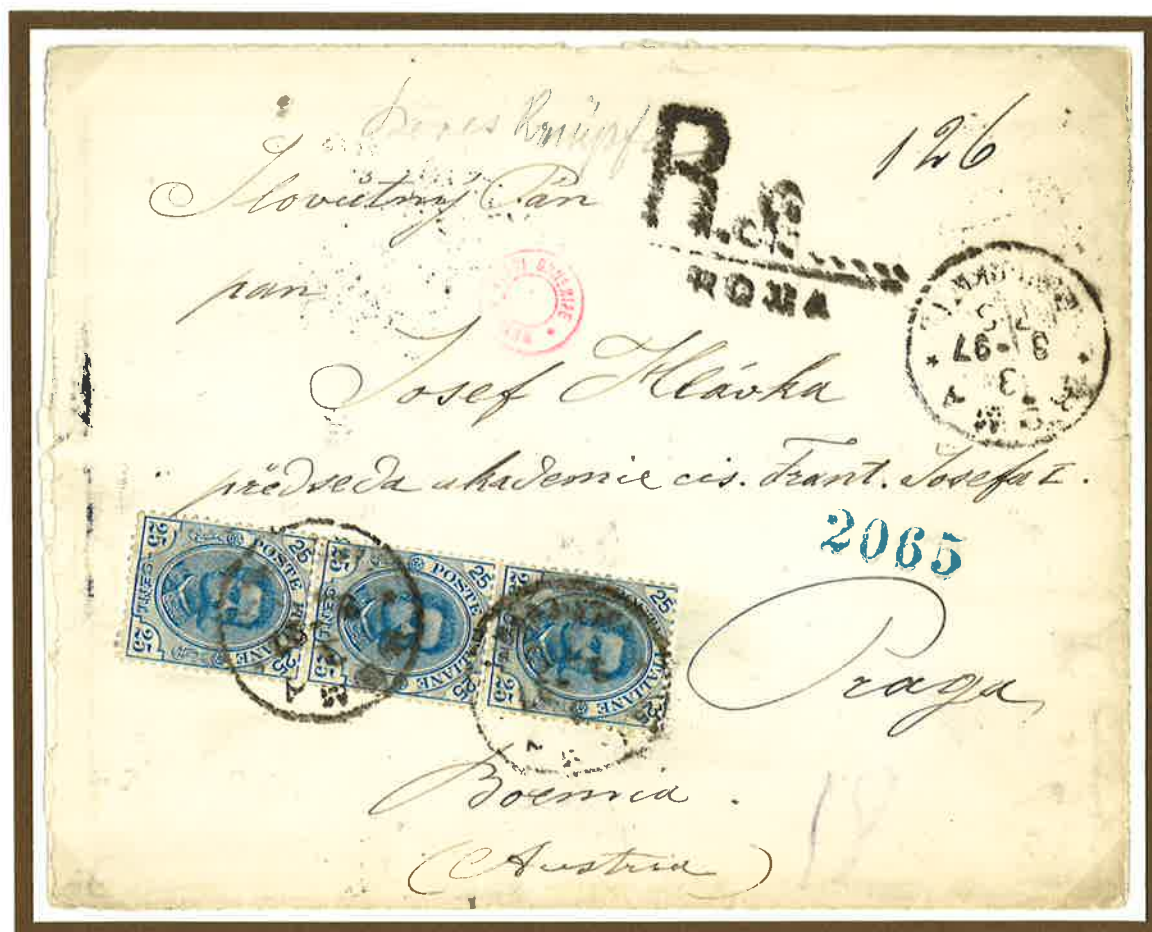 126
Slovutný Pán
R
ROMA
pan
Josef Hlávka
3 -97
13
ROMA
předseda akademie cis. Frant. Josefa I.
2065
25 POSTE ITALIANE 25
25 POSTE ITALIANE 25
25 POSTE ITALIANE 25
Praga
Boemia.
(Austria)